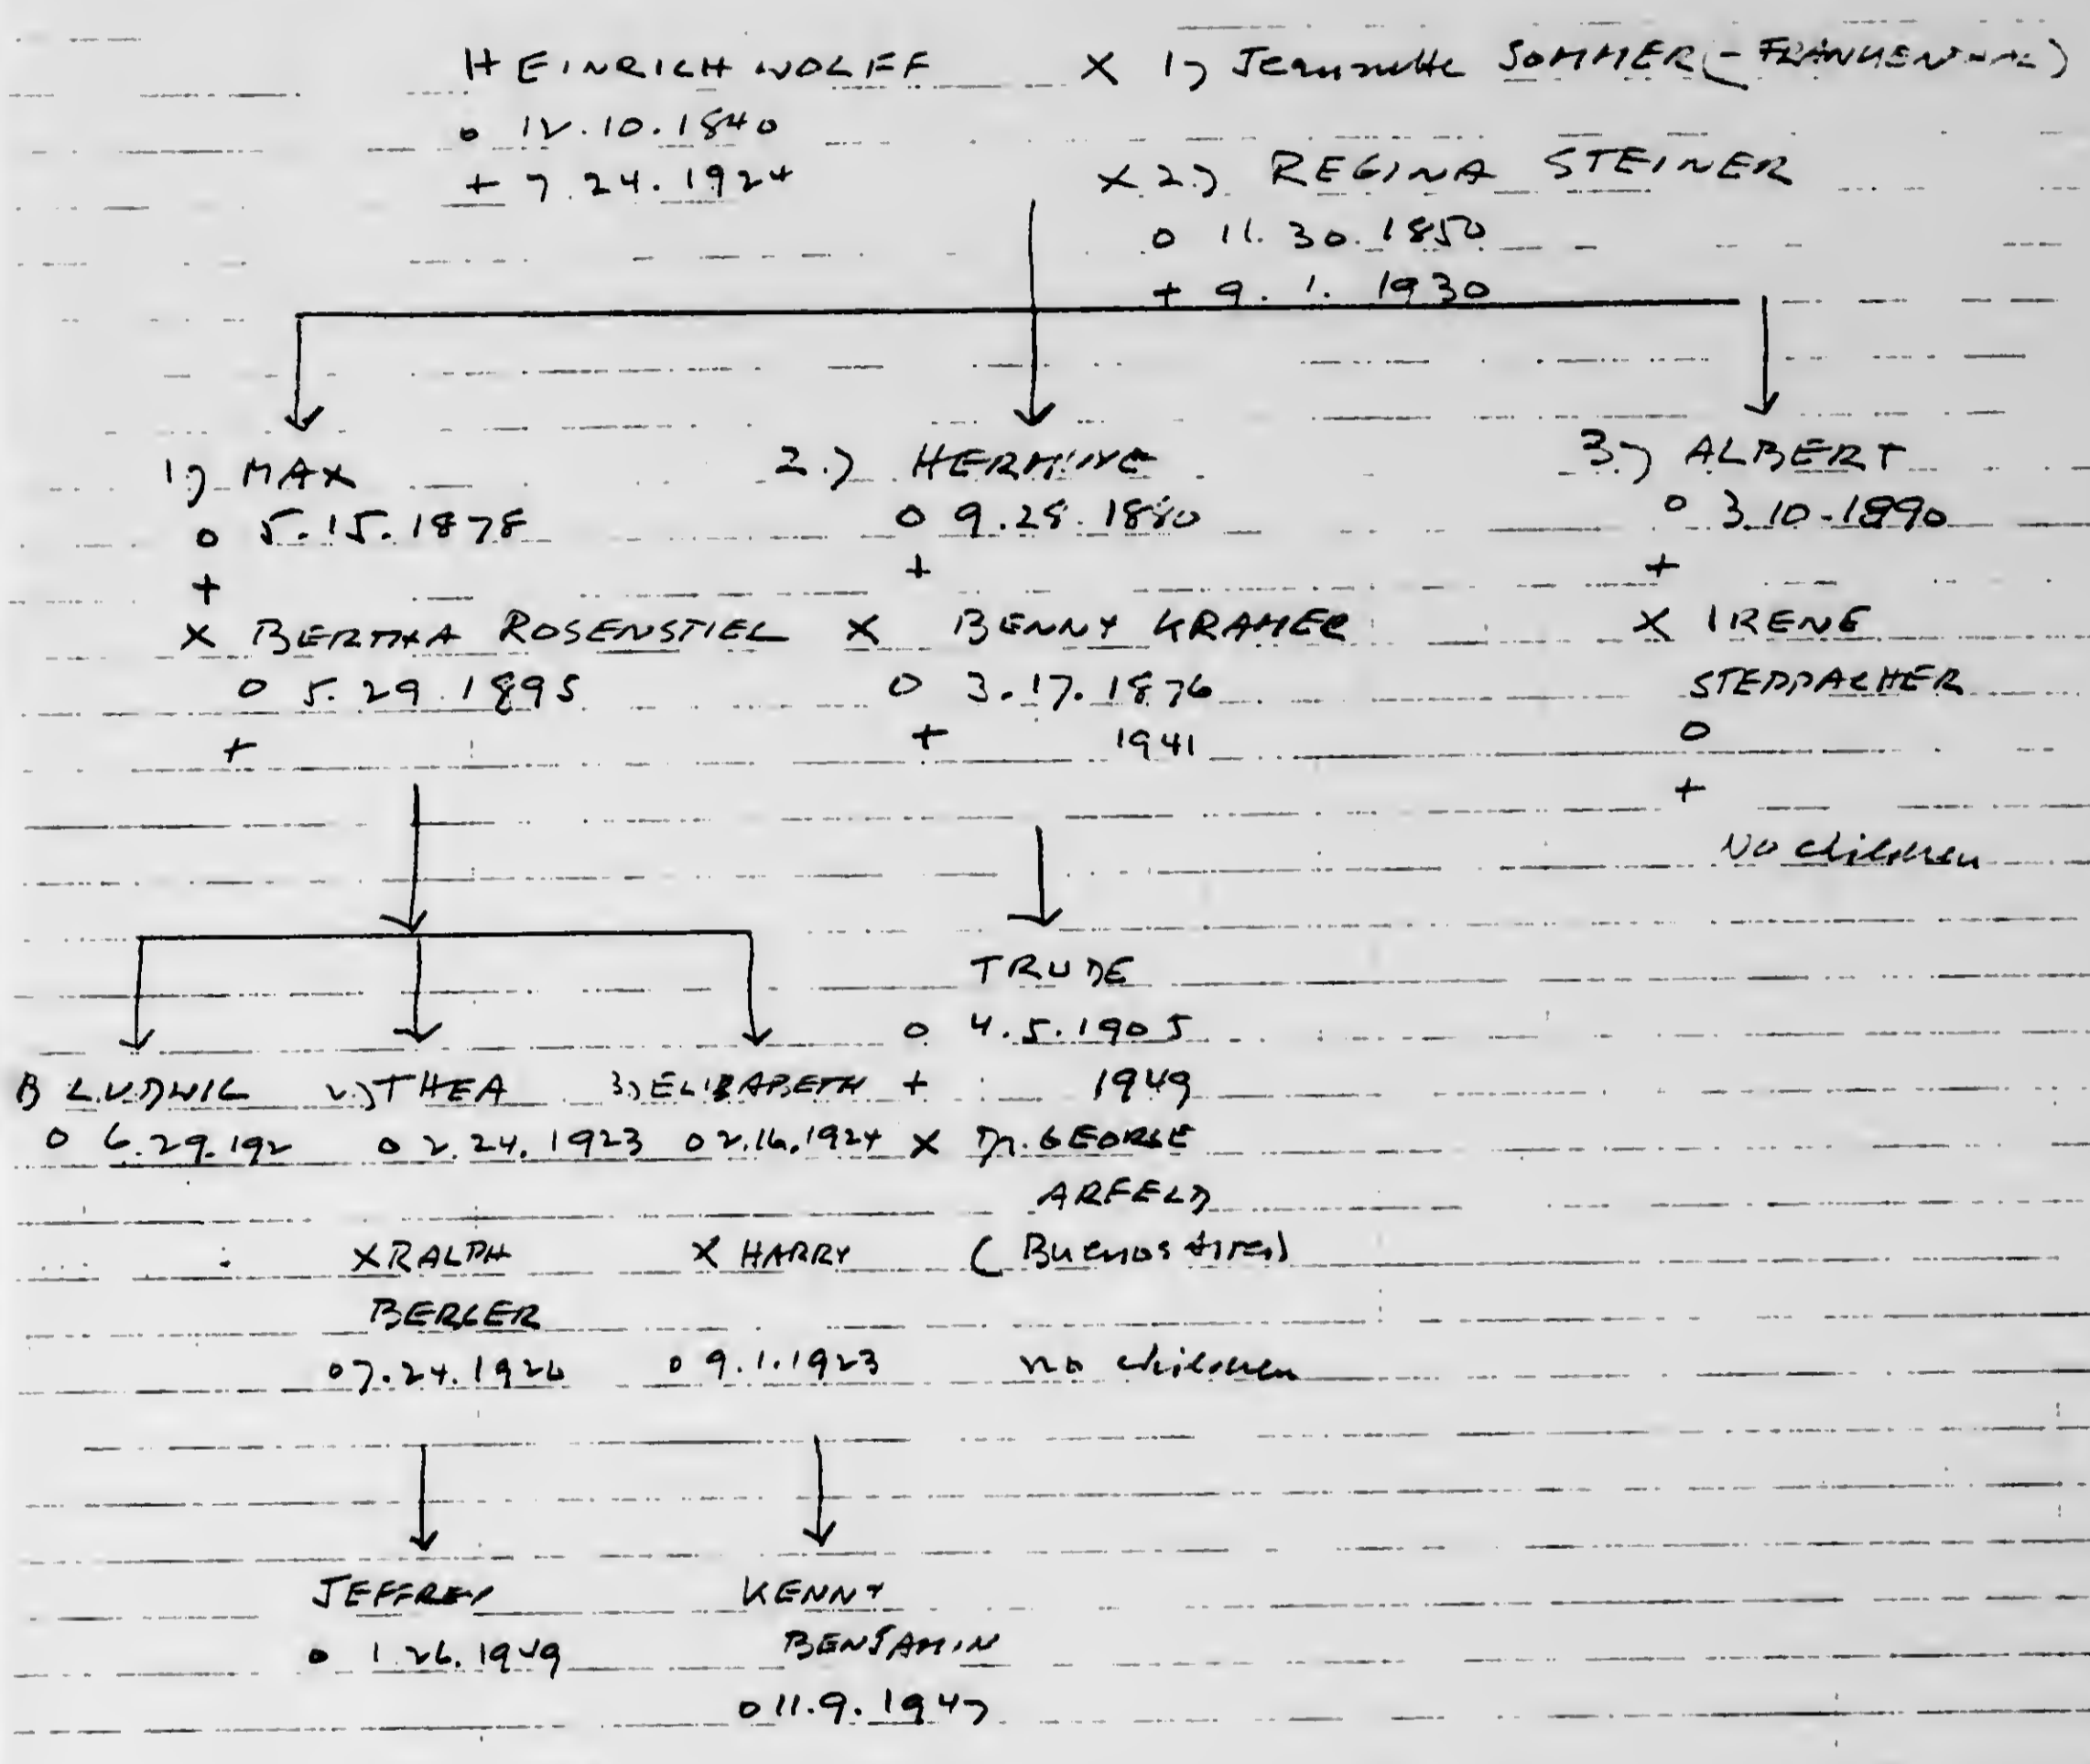 HEINRICH WOLFF X 1) Jeannette SOMMER (-FRANKENTHAL)
o 12.10.1840
+ 7.24.1924
X 2.) REGINA STEINER
o 11.30.1850
+ 9.1.1930
1) MAX
o 5.15.1878
+
X BERTHA ROSENSTIEL
o 5.29.1895
+
2.) HERMINE
o 9.28.1880
+
X BENNY KRAMER
o 3.17.1876
+ 1941
3.) ALBERT
o 3.10.1890
+
X IRENE
STEPPACHER
o
+
No children
1) LUDWIG
o 6.29.192
2.) THEA
o 2.24.1923
X RALPH
BERGER
o 7.24.1926
3.) ELISABETH
o 2.16.1924
X HARRY
o 9.1.1923
TRUDE
o 4.5.1905
+ 1949
X Dr. GEORGE
ARFELD
(Buenos Aires)
no children
JEFFREY
o 1.26.1949
KENNY
BENJAMIN
o 11.9.1947